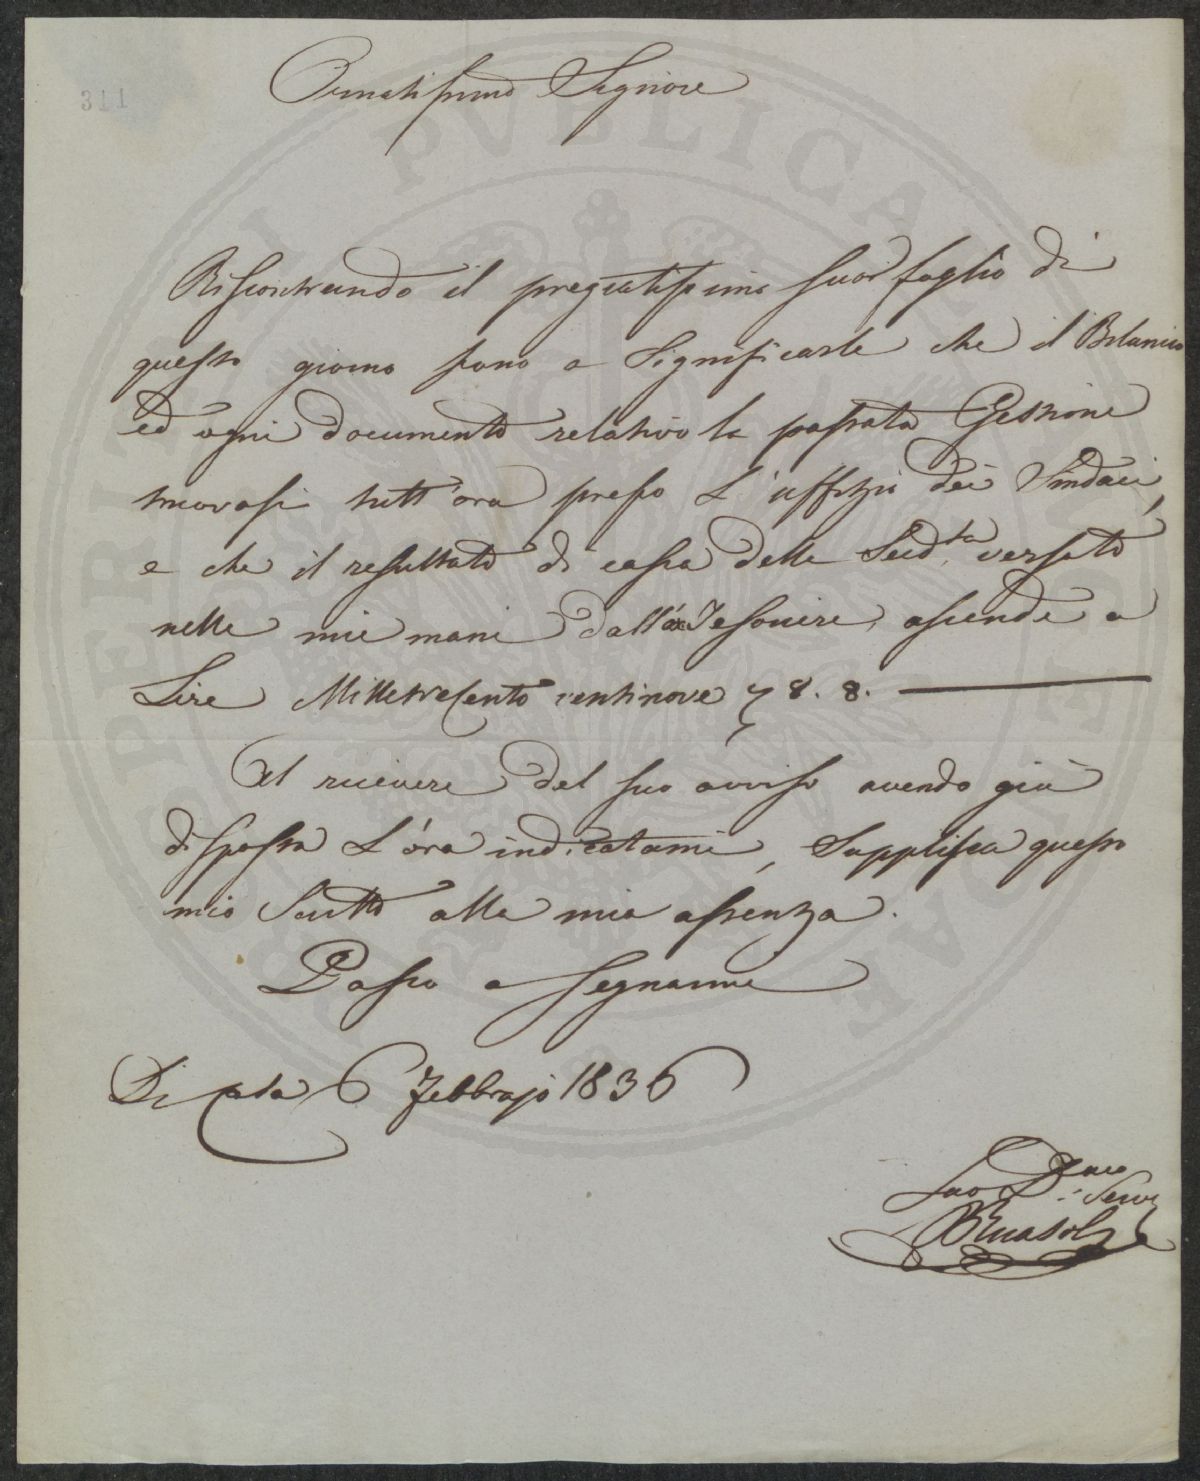 311
Ornatissimo Signore
Riscontrando il pregiatissimo suo foglio di
questo giorno sono a significarle che il Bilancio
ed ogni documento relativo la passata Gestione
trovasi tutt'ora presso L'uffizio dei Sindaci,
e che il resultato di cassa della Sudta versato
nelle mie mani dall' Tesoriere, ascende a
Lire Milletrecento ventinove 8. 8.
Al ricevere del suo avviso avendo già
disposta L'ora indicatami, Supplisca questo
mio Scritto alla mia assenza.
Passo a segnarmi
Di Casa 6 Febbrajo 1836
Suo Serv